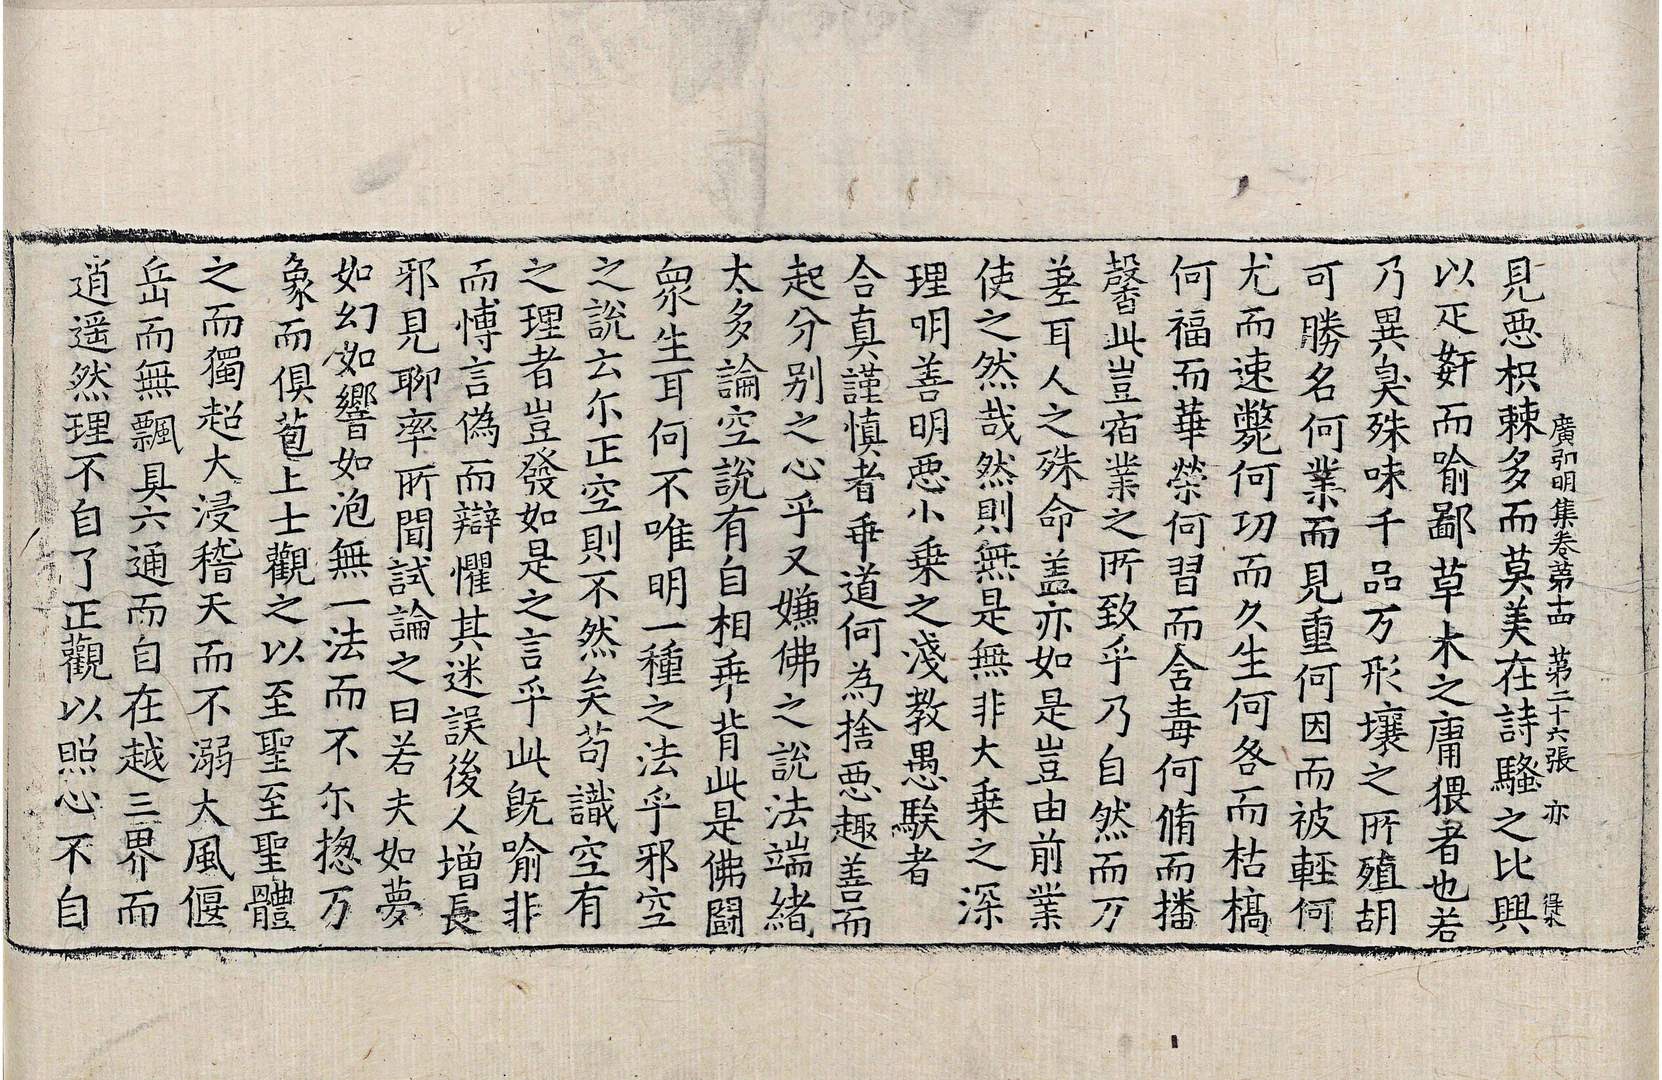 廣弘明集卷苐十四 苐二十六張 亦
見惡枳棘多而莫美在詩騷之比興
以疋姧而喻鄙草木之庸猥者也若
乃異臭殊味千品万形壤之所殖胡
可勝名何業而見重何因而被輕何
尤而速斃何功而久生何咎而枯槁
何福而華榮何習而含毒何脩而播
馨此豈宿業之所致乎乃自然而万
差耳人之殊命盖亦如是豈由前業
使之然哉然則無是無非大乗之深
理明善明惡小乗之淺教愚騃者
合真謹慎者乖道何為捨惡趣善而
起分别之心乎又嫌佛之說法端緒
太多論空說有自相乖背此是佛闘
衆生耳何不唯明一種之法乎邪空
之說云尓正空則不然矣苟識空有
之理者豈發如是之言乎此旣喻非
而愽言偽而辯懼其迷誤後人增長
邪見聊率所聞試論之曰若夫如夢
如幻如響如泡無一法而不尓揔万
象而俱苞上士觀之以至聖至聖體
之而獨超大浸稽天而不溺大風偃
岳而無飄具六通而自在越三界而
逍遥然理不自了正觀以照心不自